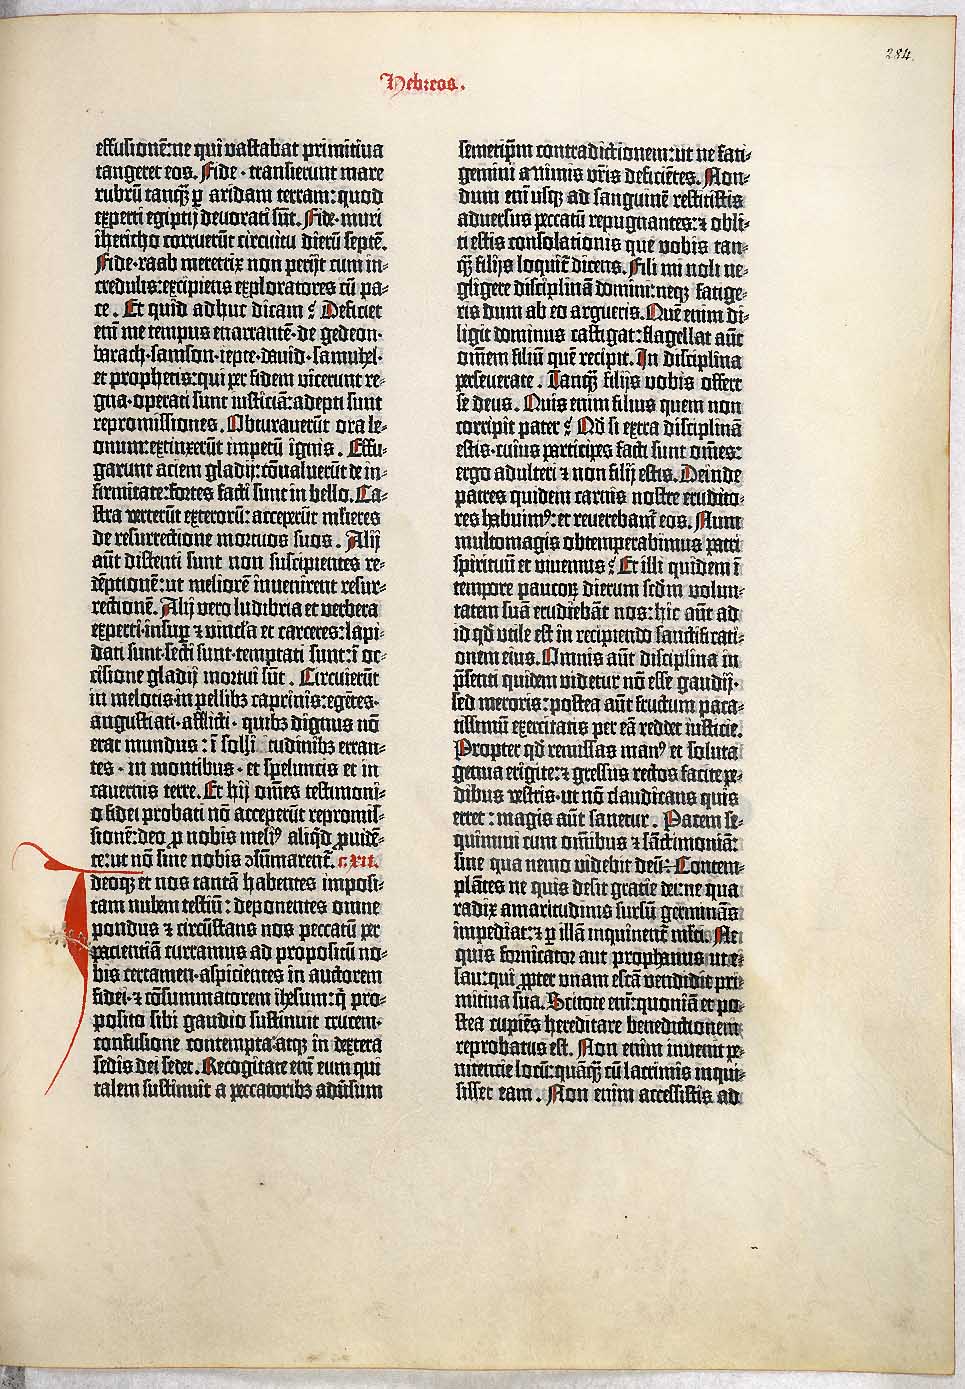 284.
Hebreos.
effusionē: ne qui vastabat primitiva
tangeret eos. Fide · transierunt mare
rubrū tanq̄ꝫ p̱ aridam terram: quod
experti egiptij devorati sūt. Fide · muri
ihericho corruerūt circuitu dierū septē.
Fide · raab meretrix non perijt cum in-
credulis: excipiens exploratores cū pa-
ce. Et quid adhuc dicam ? Deficiet
enī me tempus enarrantē · de gedeon ·
barach · samson · iepte · david · samuhel ·
et prophetis: qui per fidem vicerunt re-
gna · operati sunt iusticiā: adepti sunt
repromissiones. Obturaverūt ora le-
onum: extinxerūt impetū ignis. Effu-
garunt aciem gladij: cōvaluerūt de in-
firmitate: fortes facti sunt in bello. Ca-
stra verterūt exterorū: acceperūt m̄lieres
de resurrectione mortuos suos. Alij
aūt distenti sunt non suscipientes re-
dēptionē: ut meliorē invenirent resur-
rectionē. Alij vero ludibria et verbera
experti · insup̱ ⁊ vincla et carceres: lapi-
dati sunt · secti sunt · temptati sunt: ī oc-
cisione gladij mortui sūt. Circuierūt
in melotis · in pellibꝫ caprinis: egētes ·
angustiati · afflicti · quibꝫ dignus nō
erat mundus: ī solitudinibꝫ erran-
tes · in montibus · et speluncis et in
cavernis terre. Et hij om̄es testimoni-
o fidei probati nō acceperūt repromis-
sionē: deo ꝓ nobis meliꝰ aliqd̄ ꝓvidē-
te: ut nō sine nobis ↄsūmarent̄. c. xii.
Ideoqꝫ et nos tantā habentes imposi-
tam nubem testiū: deponentes omne
pondus ⁊ circūstans nos peccatū per
pacientiā curramus ad propositū no-
bis certamen · aspicientes in auctorem
fidei · ⁊ cōsummatorem ihesum: q̄ pro-
posito sibi gaudio sustinuit crucem ·
confusione contempta: atqꝫ in dextera
sedis dei sedet. Recogitate enī eum qui
talem sustinuit a peccatoribꝫ adv̄sum
semetip̄m contradictionem: ut ne fati-
gemini animis vr̄is deficiētes. Non-
dum enī usqꝫ ad sanguinē restitistis
adversus peccatū repugnantes: ⁊ obli-
ti estis consolationis que vobis tan-
q̄ꝫ filijs loquit̄ dicens. Fili mi noli ne-
gligere disciplinā domini: neqꝫ fatige-
ris dum ab eo argueris. Quē enim di-
ligit dominus castigat: flagellat aūt
om̄em filiū quē recipit. In disciplina
perseverate. Tanq̄ꝫ filijs vobis offert
se deus. Quis enim filius quem non
corripit pater ? Qd̄ si extra disciplinā
estis · cuius participes facti sunt om̄es:
ergo adulteri ⁊ non filij estis. Deinde
patres quidem carnis nostre erudito-
res habuimꝰ: et reverebam̄ eos. Nunc
multomagis obtemperabimus patri
spirituū et vivemus ? Et illi quidem ī
tempore paucoꝝ dierum scd̄m volun-
tatem suā erudiebāt nos: hic aūt ad
id qd̄ utile est in recipiendo sanctificati-
onem eius. Omnis aūt disciplina in
p̄senti quidem videtur nō esse gaudij ·
sed meroris: postea aūt fructum paca-
tissimū exercitatis per eā reddet iusticie.
Propter qd̄ remissas manꝰ et soluta
genua erigite: ⁊ gressus rectos facite pe-
dibus vestris · ut nō claudicans quis
erret: magis aūt sanetur. Pacem se-
quimini cum om̄ibus ⁊ sāctimoniā:
sine qua nemo videbit deū: Contem-
plātes ne quis desit gratie dei: ne qua
radix amaritudinis sursū germinās
impediat: ⁊ p̱ illā inquinent̄ m̄lti. Ne
quis fornicator aut prophanus ut e-
sau: qui ꝓpter unam escā vendidit pri-
mitiva sua. Scitote enī: quoniā et po-
stea cupiēs hereditare benedictionem
reprobatus est. Non enim invenit pe-
nitentie locū: quāq̄ꝫ cū lacrimis inqui-
sisset eam. Non enim accessistis ad